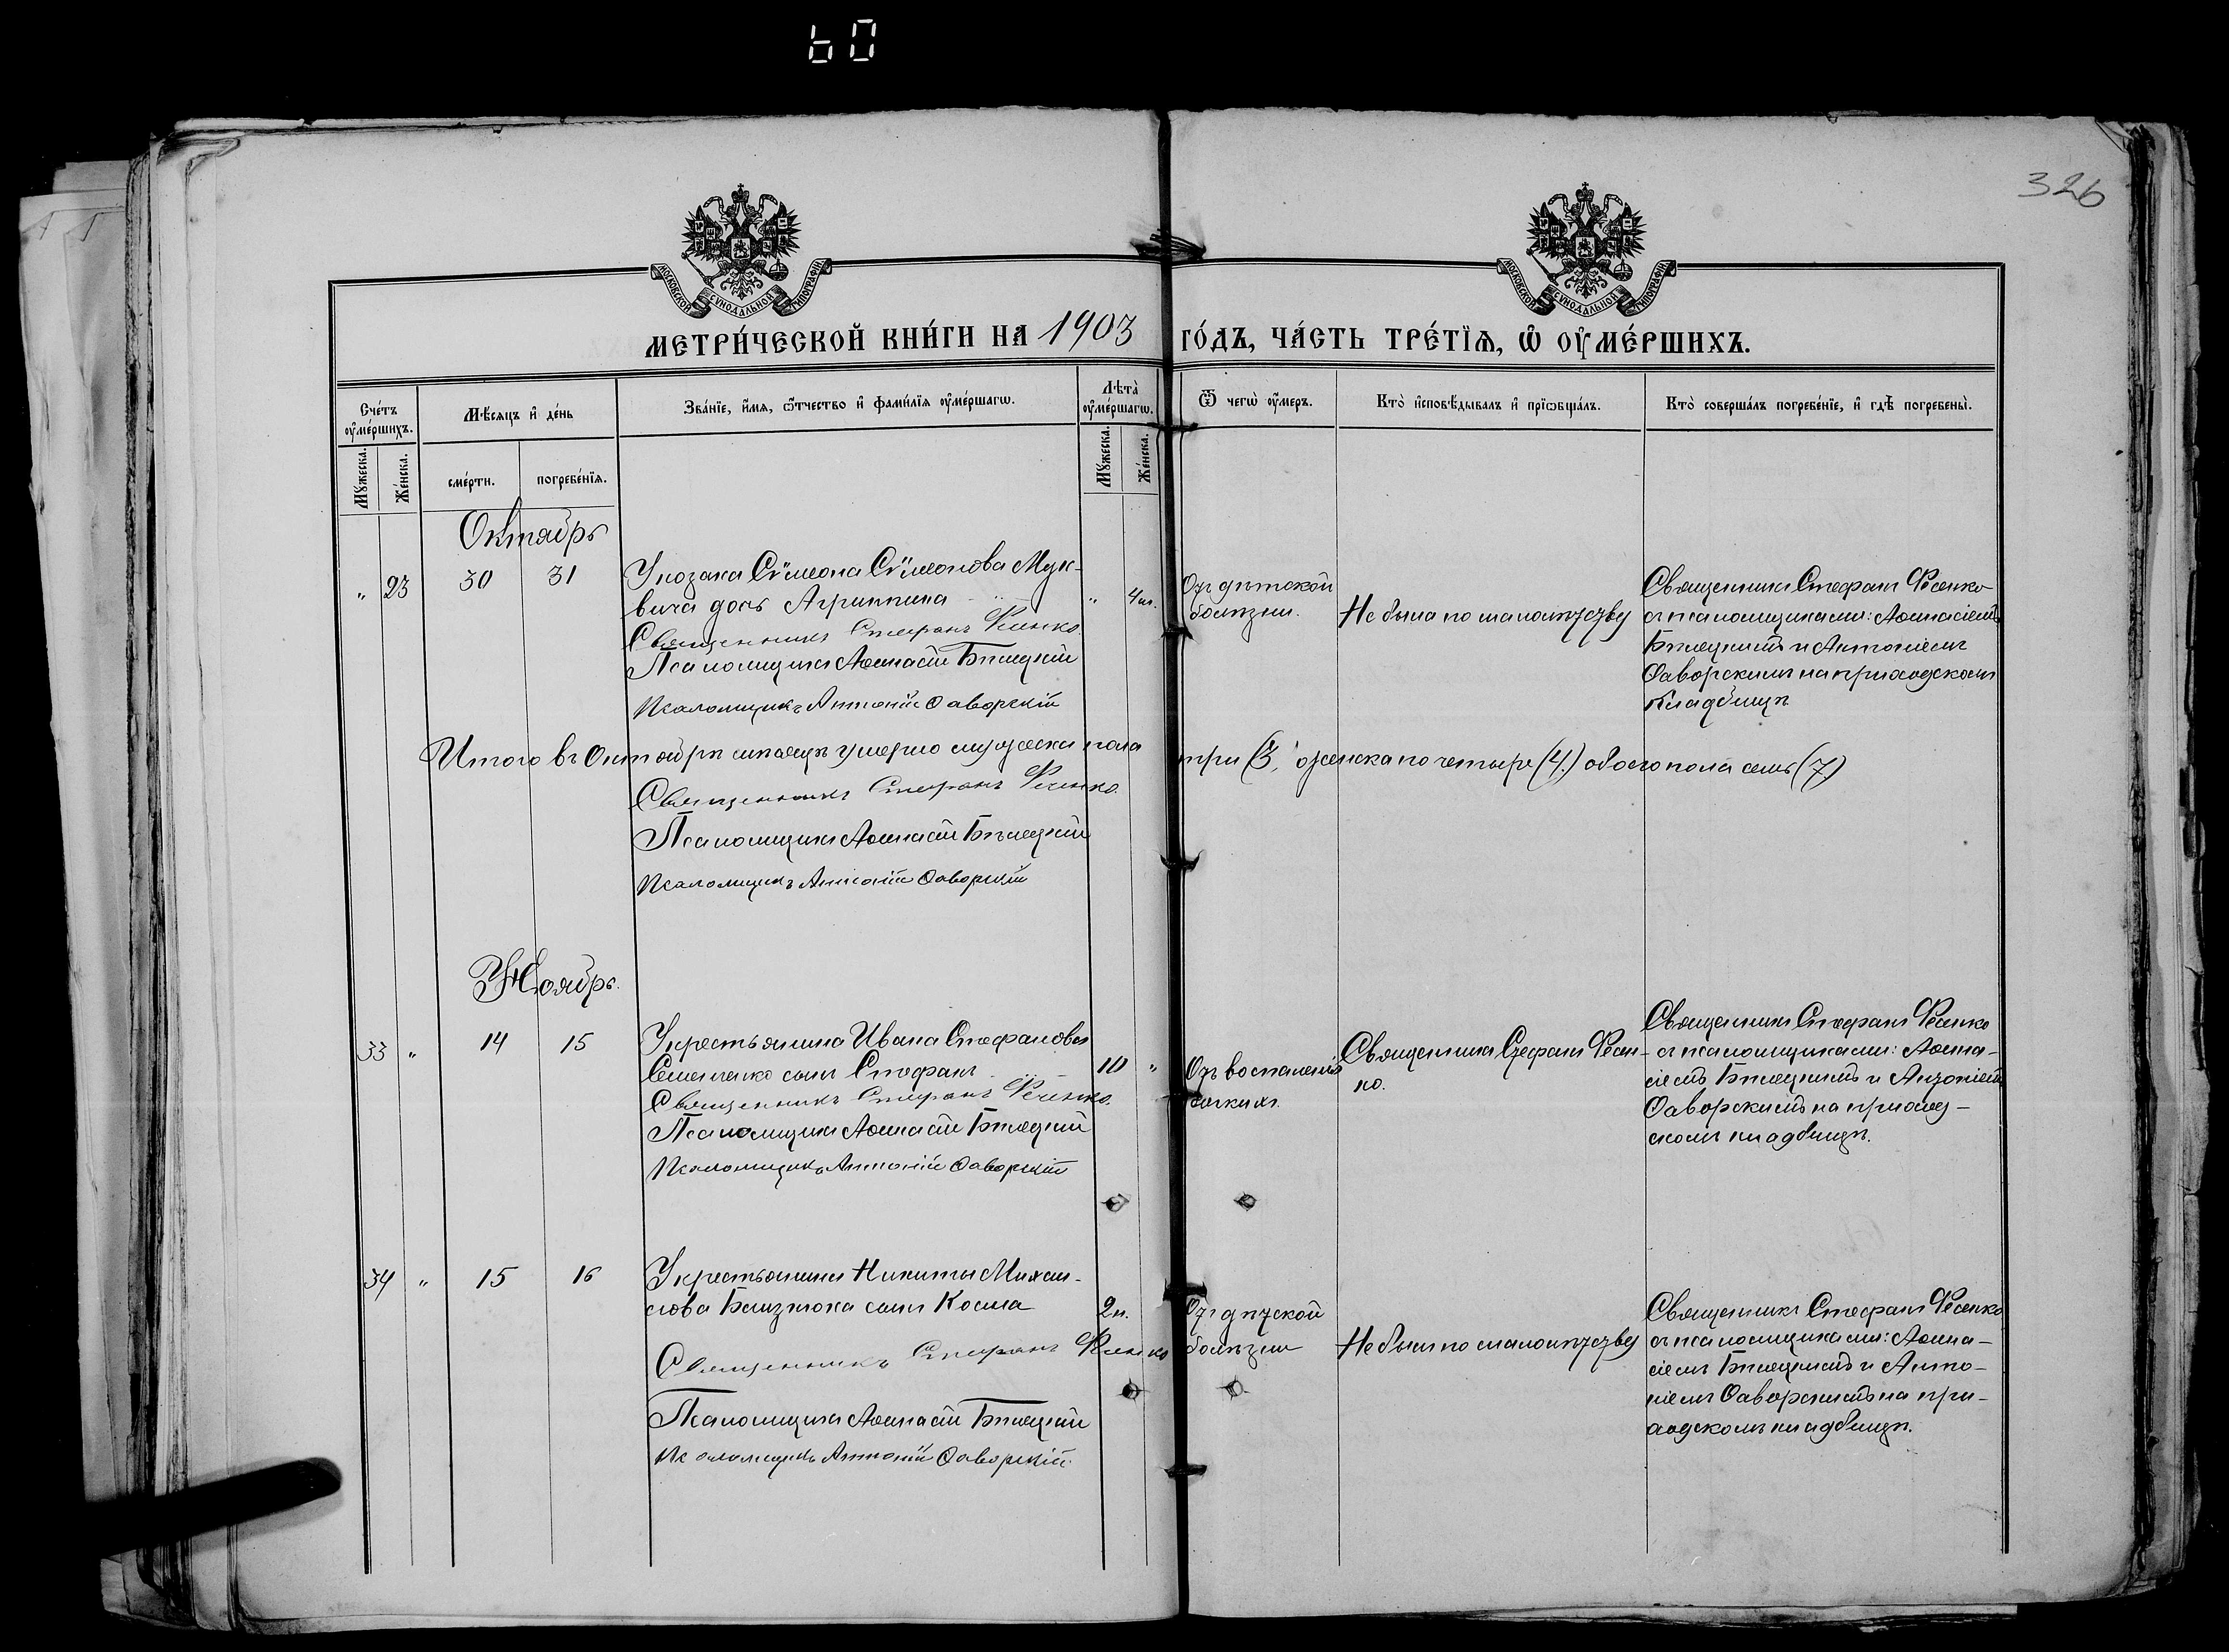 60
326
МОСКОВСКОЙ СѴНОДАЛЬНОЙ ТИПОГРАФІИ
МОСКОВСКОЙ СѴНОДАЛЬНОЙ ТИПОГРАФІИ
МЕТРИ́ЧЕСКОЙ КНИ́ГИ НА 1903 ГО́ДЪ, ЧА́СТЬ ТРЕ́ТЇѦ, Ѡ҆ ОУ҆МЕ́РШИХЪ.
Сче́тъ оу҆ме́ршихъ.
Мꙋ́жеска.
Же́нска.
Мѣ́сяцъ и҆ де́нь
сме́рти.
погребе́нїѧ.
Зва́нїе, и҆́мѧ, ѻ҆́тчество и҆ фами́лїѧ оу҆ме́ршагѡ.
Лѣ́та оу҆ме́ршагѡ.
Мꙋ́жеска.
Же́нска.
Ѿ чегѡ̀ оу҆́меръ.
Кто̀ и҆сповѣ́дывалъ и҆ прїѡбща́лъ.
Кто̀ соверша́лъ погребе́нїе, и҆ гдѣ̀ погребены̀.
Октябрь
" 23 30 31
У козака Сѵмеона Сѵмеонова
вича дочь Агриппина
" 4 м.
Священникъ Стефанъ Фесенко.
Псаломщикъ Аѳанасій Бѣлецкій
Псаломщикъ Антоній Ѳаворскій
Отъ дѣтской
болѣзни.
Не была по малолѣтству
Священникъ Стефанъ Фесенко
съ псаломщиками: Аѳанасіемъ
Бѣлецкимъ и Антоніемъ
Ѳаворскимъ на приходскомъ
кладбищѣ
Итого въ Октябрѣ мѣсяцѣ умерло мужеска пола три (3) женска по четыре (4.) обоего пола семь (7)
Священникъ Стефанъ Фесенко.
Псаломщикъ Аѳанасій Бѣлецкій
Псаломщикъ Антоній Ѳаворскій
Ноябрь.
33 " 14 15
У крестьянина Ивана Стефанова
Семененко сынъ Стефанъ
10 "
Священникъ Стефанъ Фесенко.
Псаломщикъ Аѳанасій Бѣлецкій
Псаломщикъ Антоній Ѳаворскій
Отъ воспаленія
почекъ.
Священникъ Стефанъ Фесен-
ко.
Священникъ Стефанъ Фесенко
съ псаломщиками: Аѳана-
сіемъ Бѣлецкимъ и Антоніемъ
Ѳаворскимъ на приход-
скомъ кладбищѣ.
34 " 15 16
У крестьянина Никиты Михаи-
лова Близнюка сынъ Косма
2 н.
Священникъ Стефанъ Фесенко
Псаломщикъ Аѳанасій Бѣлецкій
Псаломщикъ Антоній Ѳаворскій
Отъ дѣтской
болѣзни
Не былъ по малолѣтству
Священникъ Стефанъ Фесенко
съ псаломщиками: Аѳана-
сіемъ Бѣлецкимъ и Анто-
ніемъ Ѳаворскимъ на при-
ходскомъ кладбищѣ.